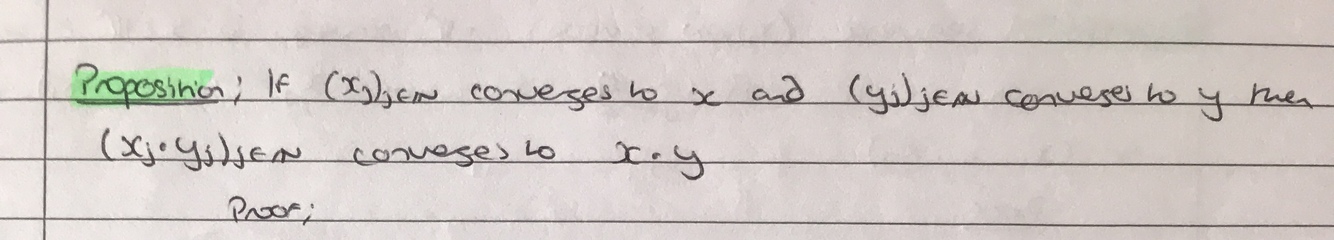 Proposition; If (xⱼ)ⱼ∈ℕ converges to x and (yⱼ)ⱼ∈ℕ converges to y then
(xⱼ·yⱼ)ⱼ∈ℕ converges to x·y
Proof;